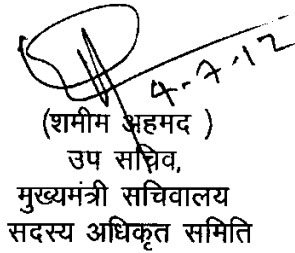 4-7-12
(शमीम अहमद )
उप सचिव,
मुख्यमंत्री सचिवालय
सदस्य अधिकृत समिति